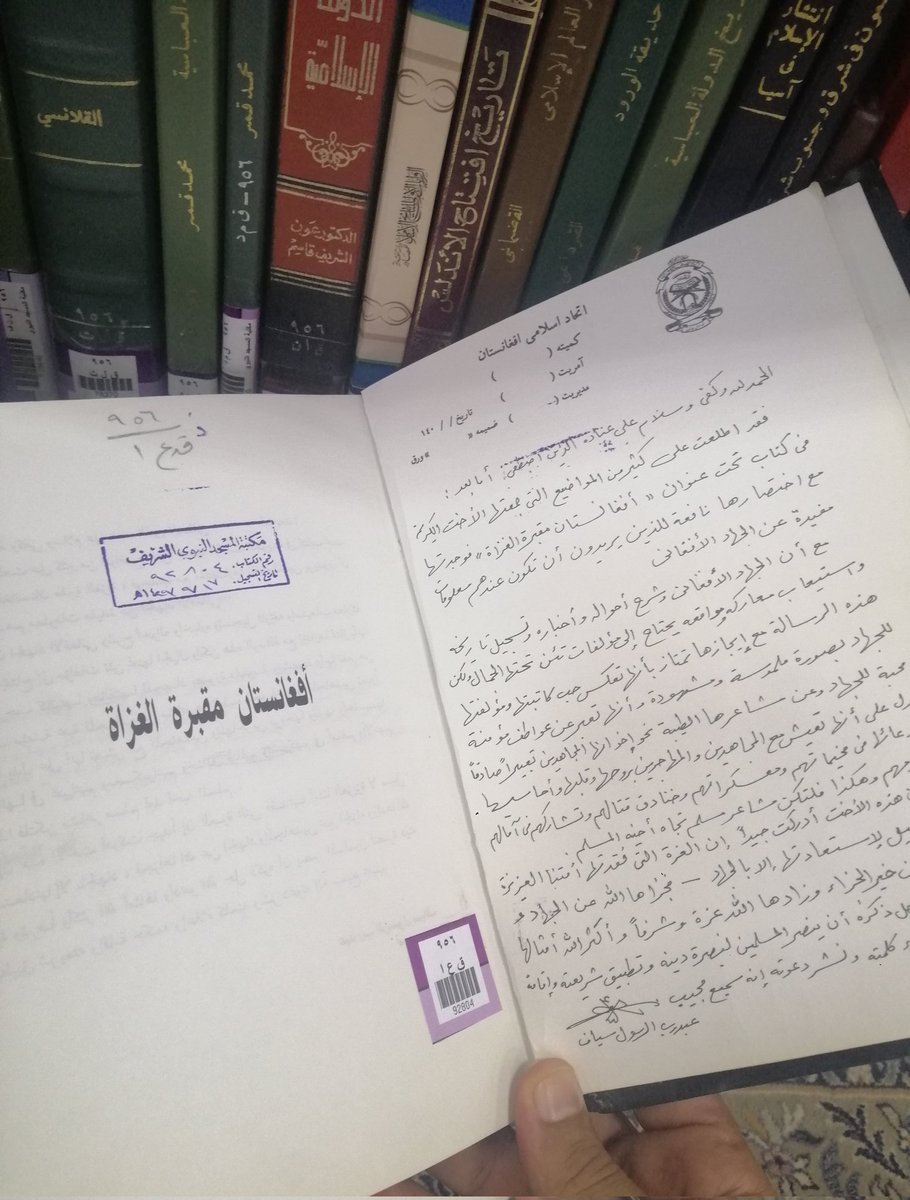 القلانسي
العباسية
محمد قمر
محمد قمر
٩٥٦ - ق م د
الإسلامي
الدكتور عون
الشريف قاسم
٩٥٦
تاريخ افتتاح الأندلس
العالم الإسلامي
القضماني
حديقة الورود
تاريخ الدولة العباسية
٩٥٦
٩٥٦
٩٥٦
ق د ع ا
مكتبة المسجد النبوي الشريف
رقم الكتاب: ٩٢٨٠٤
تاريخ التسجيل:
أفغانستان مقبرة الغزاة
٩٥٦
ق ع ا
92804
اتحاد اسلامى افغانستان
كميته ( )
آمريت ( )
مديريت ( ) ضميمه « » ورق
تاريخ / / ١٤٠
الحمد لله وكفى وسلام على عباده الذين اصطفى. أما بعد:
فقد اطلعت على كثير من المواضيع التي جمعتها الأخت الكريمة
في كتاب تحت عنوان « أفغانستان مقبرة الغزاة » فوجدتها
مع اختصارها نافعة للذين يريدون أن تكون عندهم معلومات
مفيدة عن الجهاد الأفغاني
مع أن الجهاد الأفغاني وشرح أحواله وأخباره وتسجيل تاريخه
واستيعاب معاركه ومواقعه يحتاج إلى مؤلفات تئن تحتها الجمال ولكن
هذه الرسالة مع إيجازها تمتاز بأنها تعكس حب كاتبتها ومؤلفتها
للجهاد بصورة ملموسة ومشهودة وأنها تعبر عن عواطف مؤمنة
محبة للجهاد وعن مشاعرها الطيبة نحو إخوانها المجاهدين تعبيراً صادقاً
على أنها تعيش مع المجاهدين والمهاجرين بروحها وقلبها وأحاسيسها
في مخيماتهم ومعسكراتهم وخنادق قتالهم وتشاركهم في آمالهم
وهكذا فلتكن مشاعر مسلم تجاه أخيه المسلم
هذه الأخت أدركت جيداً إن العزة التي فقدتها أمتنا العزيزة
لاستعادتها إلا بالجهاد - فجزاها الله عن الجهاد و
خير الجزاء وزادها الله عزة وشرفاً وأكثر الله أمثالها
ذكره أن ينصر المسلمين لنصرة دينه وتطبيق شريعته وإعانة
كلمته ونشر دعوته إنه سميع مجيب
عبدرب الرسول سياف